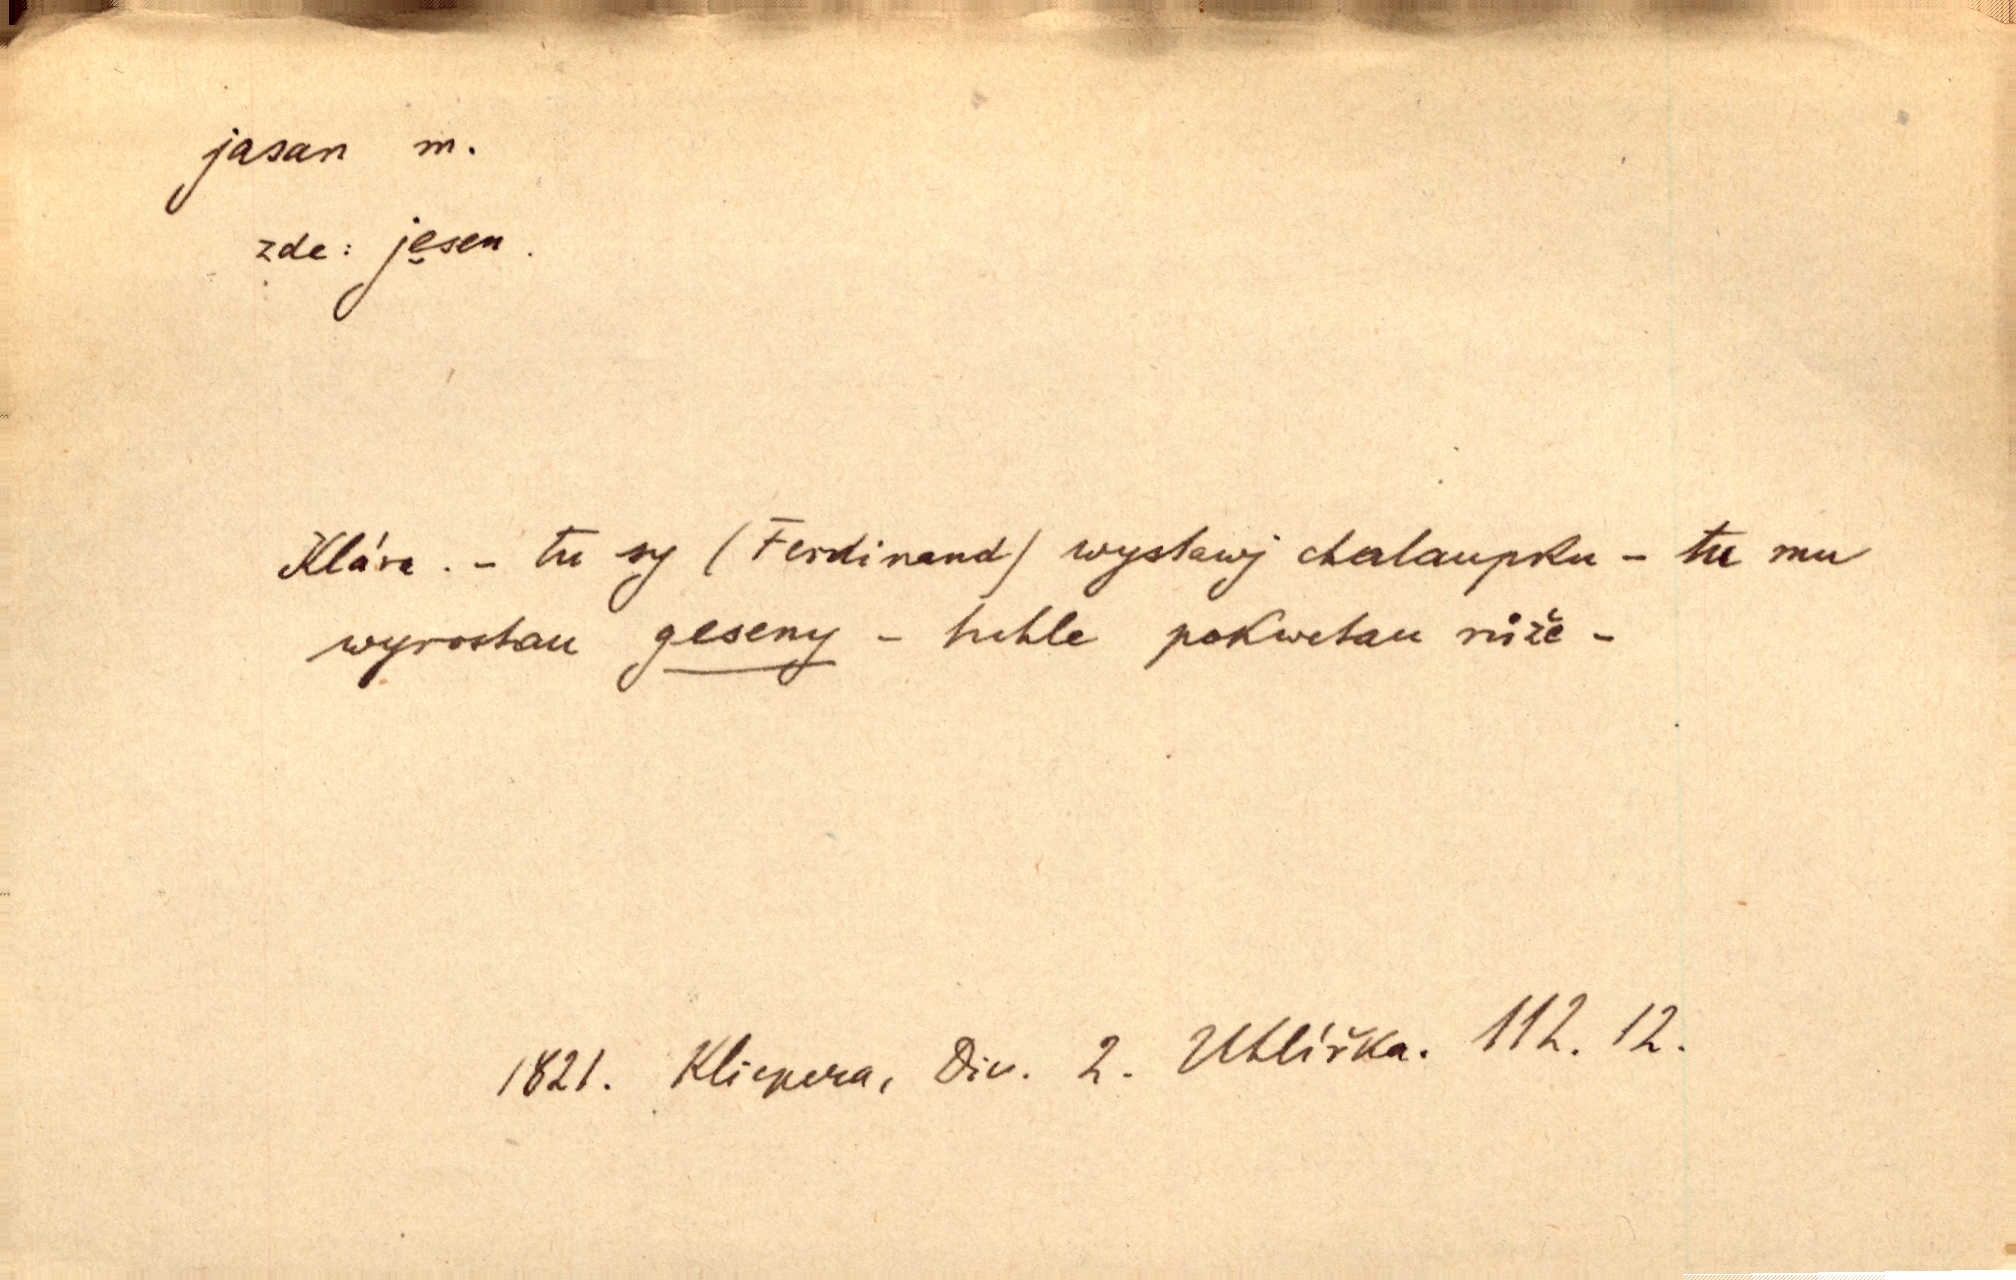 jasan m.
zde: jesen.
Klára. - tu sy (Ferdinand) wystawj chalaupku - tu mu
wyrostau geseny - tuhle pokwetau růže -
1821. Klicpera, Div. 2. Uhlířka. 112. 12.